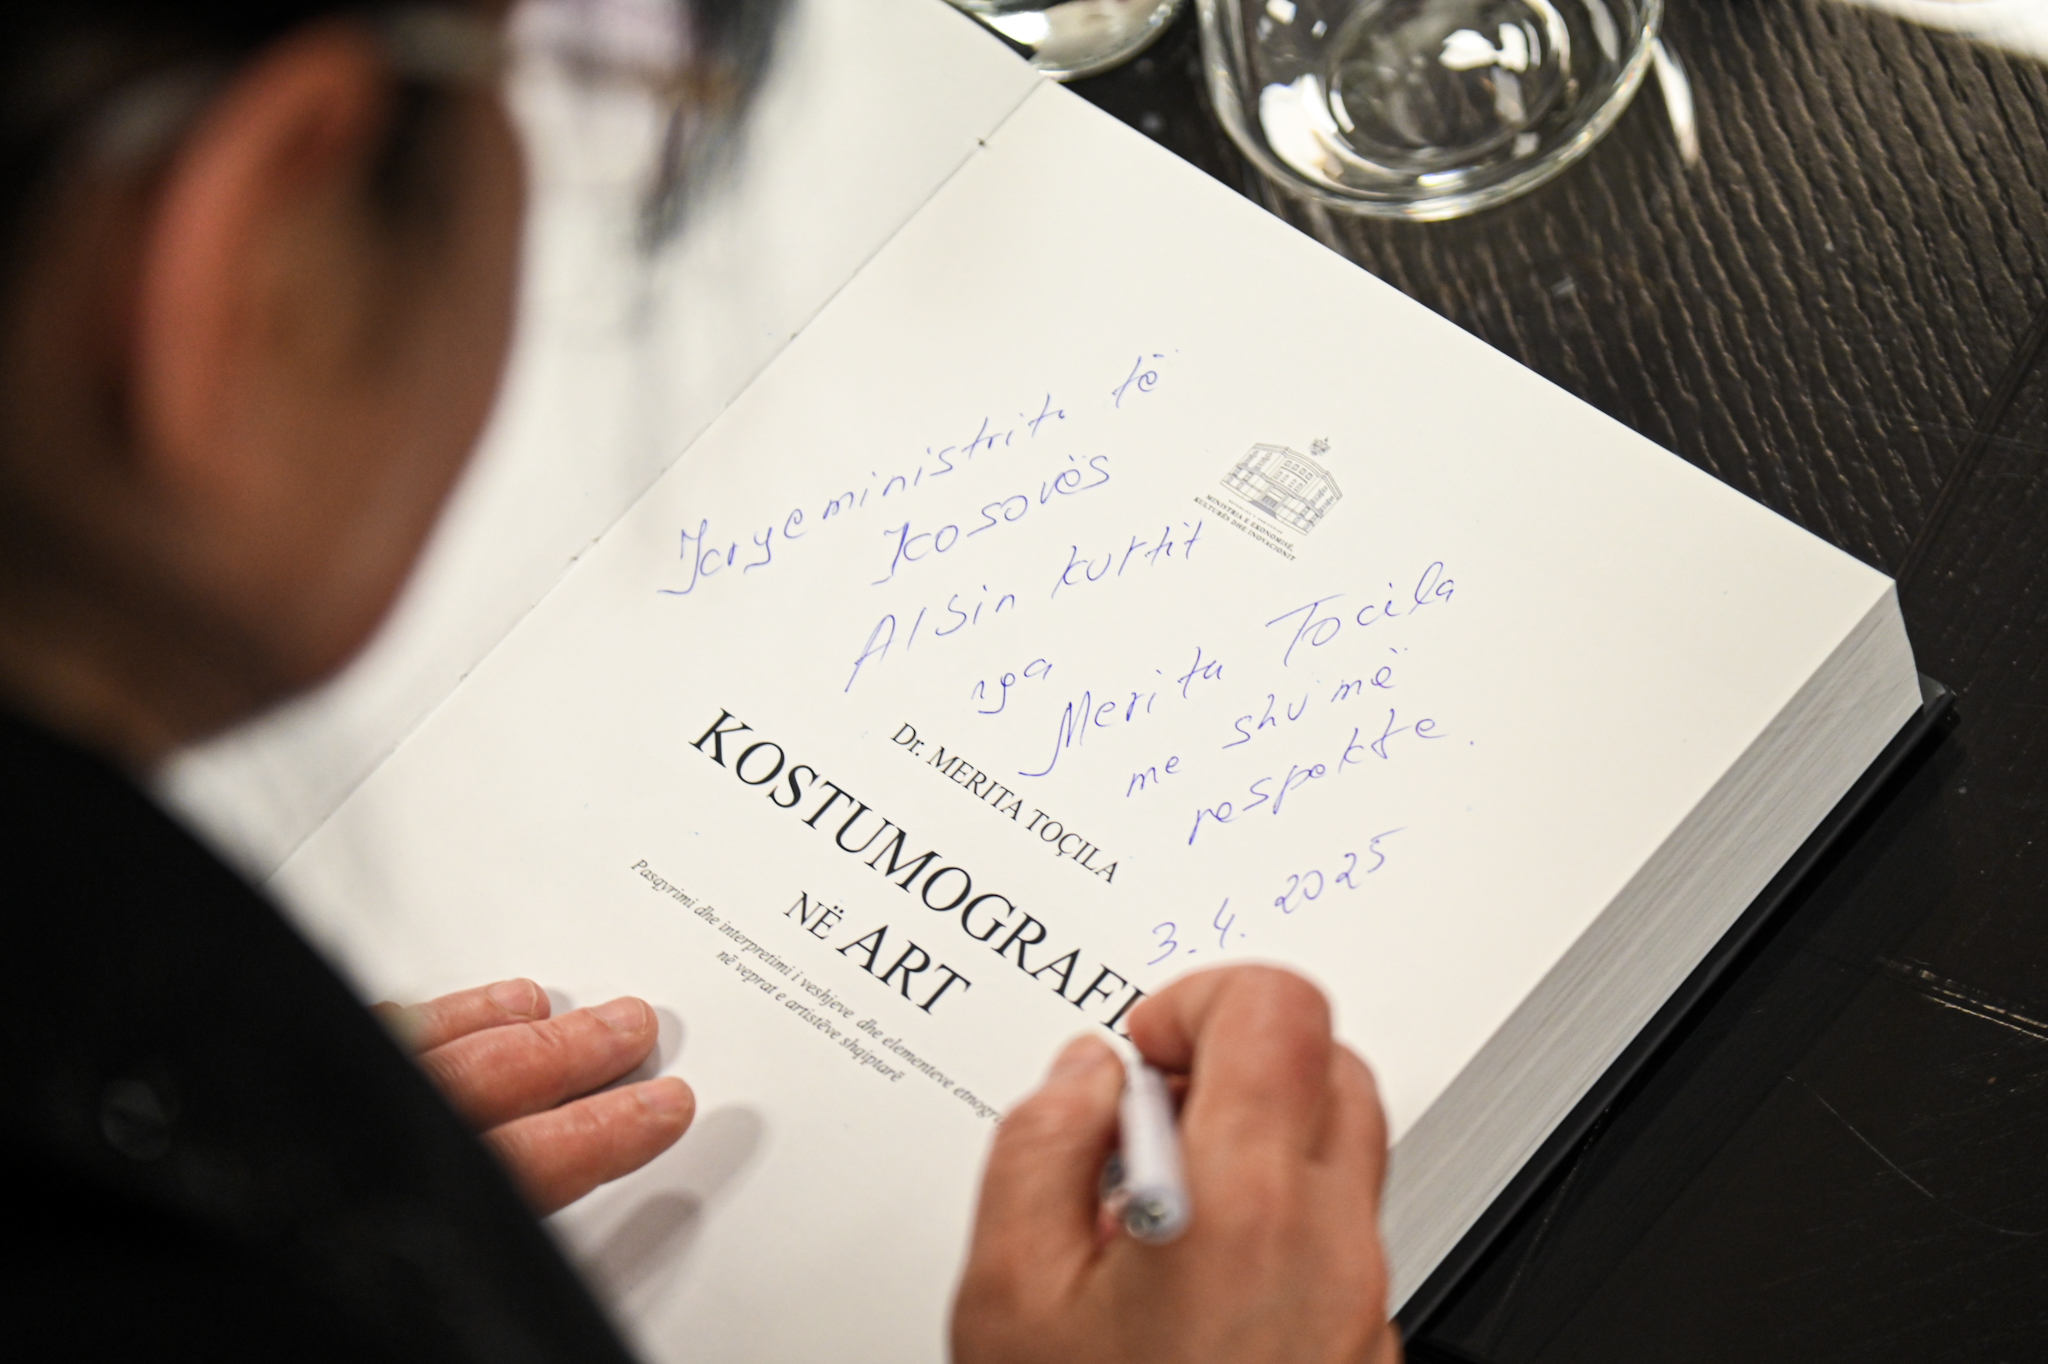 Kryeministrit të
Kosovës
Albin kurtit
nga
Merita Tocila
me shumë
respekte.
3.4. 2025
MINISTRIA E EKONOMISË,
KULTURËS DHE INOVACIONIT
Dr. MERITA TOÇILA
KOSTUMOGRAFI
NË ART
Pasqyrimi dhe interpretimi i veshjeve dhe elementeve
në veprat e artistëve shqiptarë